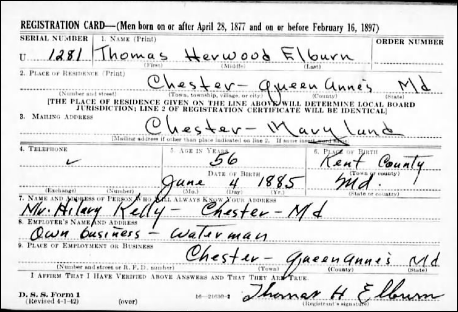 REGISTRATION CARD—(Men born on or after April 28, 1877 and on or before February 16, 1897)
SERIAL NUMBER 1. NAME (Print) ORDER NUMBER
U 1281 Thomas Herwood Elburn
(First) (Middle) (Last)
2. PLACE OF RESIDENCE (Print)
Chester – Queen Anne's Md
(Number and street) (Town, township, village, or city) (County) (State)
[THE PLACE OF RESIDENCE GIVEN ON THE LINE ABOVE WILL DETERMINE LOCAL BOARD
JURISDICTION; LINE 2 OF REGISTRATION CERTIFICATE WILL BE IDENTICAL]
3. MAILING ADDRESS
Chester – Maryland
[Mailing address if other than place indicated on line 2. If same insert word same]
4. TELEPHONE 5. AGE IN YEARS 6. PLACE OF BIRTH
56 Kent County
DATE OF BIRTH (Town or county)
June 4 1885 Md.
(Exchange) (Number) (Mo.) (Day) (Yr.) (State or country)
7. NAME AND ADDRESS OF PERSON WHO WILL ALWAYS KNOW YOUR ADDRESS
Mr. Hilary Kelly – Chester – Md
8. EMPLOYER'S NAME AND ADDRESS
Own business – Waterman
9. PLACE OF EMPLOYMENT OR BUSINESS
Chester – Queen Anne's Md
(Number and street or R. F. D. number) (Town) (County) (State)
I AFFIRM THAT I HAVE VERIFIED ABOVE ANSWERS AND THAT THEY ARE TRUE.
D. S. S. Form 1
(Revised 4-1-42) (over) Thomas H Elburn
(Registrant's signature)